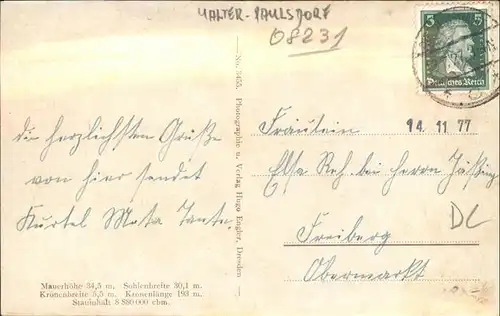 MALTER-PAULSDORF
08231
5 5
Deutsches Reich
die herzlichsten Grüße
von hier sendet
Kurtel Tante.
No. 5455. Photographie u. Verlag Hugo Engler, Dresden
Mauerhöhe 34,5 m. Sohlenbreite 30,1 m.
Kronenbreite 5,5 m. Kronenlänge 193 m.
Stauinhalt 8 880 000 cbm.
Fräulein
14. 11 77
Elsa bei Herrn
DL
Freiberg
Obermarkt